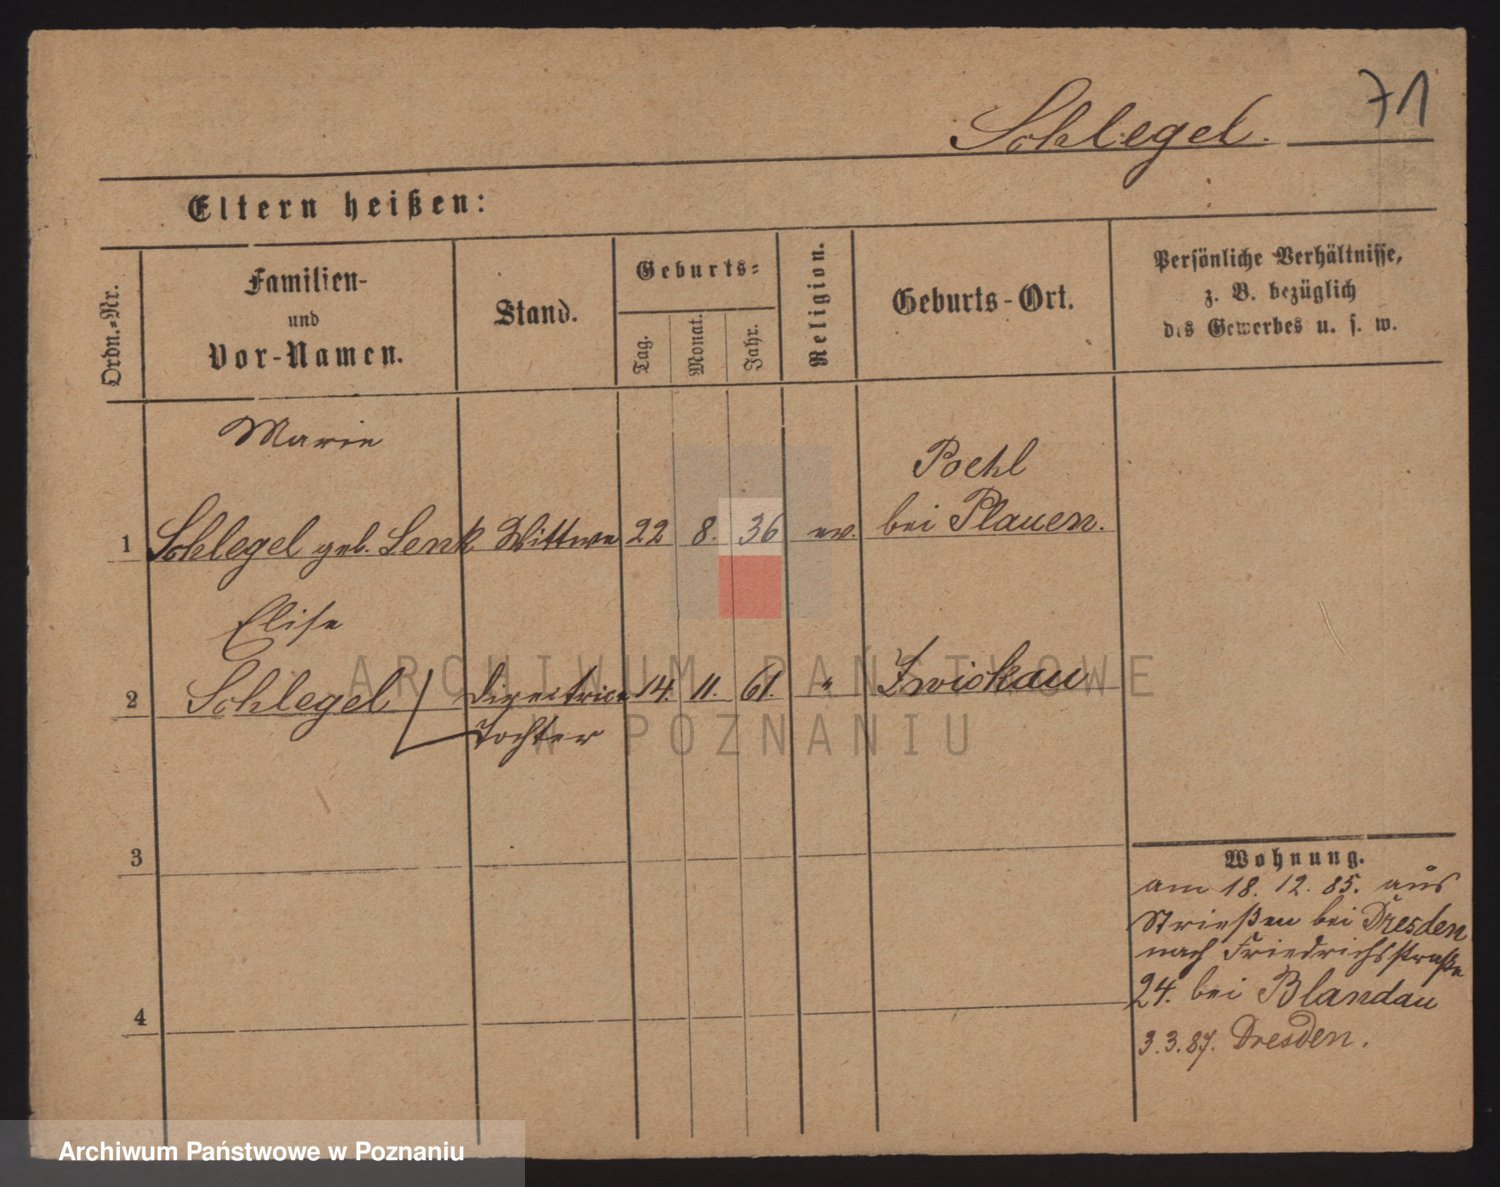 71
Schlegel.
Eltern heißen:
Ordn.=Nr.
Familien-
und
Vor-Namen.
Stand.
Geburts=
Tag.
Monat.
Jahr.
Religion.
Geburts-Ort.
Persönliche Verhältnisse,
z. B. bezüglich
des Gewerbes u. s. w.
Marie
Poehl
1 Schlegel geb. Senk Wittwe 22 8. 36 ev. bei Plauen.
Elise
2 Schlegel Direitrice 14. 11. 61. " Zwickau
Tochter
3
4
Wohnung.
am 18. 12. 85. aus
Strießen bei Dresden
nach Friedrichsstraße
24. bei Blandau
3.3.87. Dresden.
ARCHIWUM PAŃSTWOWE
W POZNANIU
Archiwum Państwowe w Poznaniu